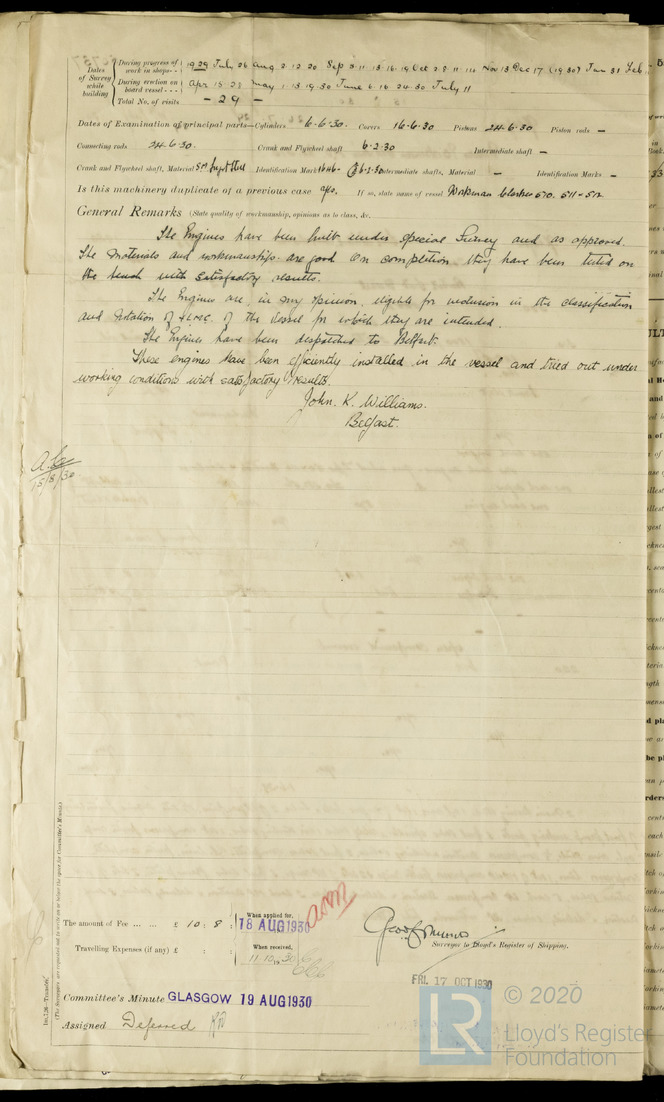 Dates of Survey while building
During progress of work in shops - - 1929 July 26 Aug 2 12 20 Sep 3 11 13 16 19 Oct 2 8 11 Nov 13 Dec 17 (1930) Jan 31 Feb
During erection on board vessel - - - Apr 15 23 May 1 13 19 30 June 6 16 24 30 July 11
Total No. of visits - 29 -
Dates of Examination of principal parts—Cylinders 6-6-30. Covers 16-6-30 Pistons 24-6-30 Piston rods -
Connecting rods 24-6-30. Crank and Flywheel shaft 6-2-30 Intermediate shaft -
Crank and Flywheel shaft, Material S.M. Ingot Steel Identification Mark 1646- 6-2-30 Intermediate shafts, Material - Identification Marks -
Is this machinery duplicate of a previous case Yes. If so, state name of vessel Workman Clarkes 510. 511 & 512
General Remarks (State quality of workmanship, opinions as to class, &c.
The Engines have been built under special Survey and as approved.
The materials and workmanship are good On completion they have been tested on
the bench with satisfactory results.
The Engines are, in my opinion, eligible for inclusion in the classification
and notation of +LMC. of the Vessel for which they are intended.
The Engines have been despatched to Belfast.
These engines have been efficiently installed in the vessel and tried out under
working conditions with satisfactory results.
John. K. Williams.
Belfast.
15/8/30
The amount of Fee ... ... £ 10 : 8 : When applied for, 18 AUG 1930
Travelling Expenses (if any) £ : : When received, 11.10.30
Surveyor to Lloyd's Register of Shipping.
FRI. 17 OCT 1930
Committee's Minute GLASGOW 19 AUG 1930
Assigned Deferred
(The Surveyors are requested not to write on or below the space for Committee's Minute.)
© 2020
LR
Lloyd's Register
Foundation